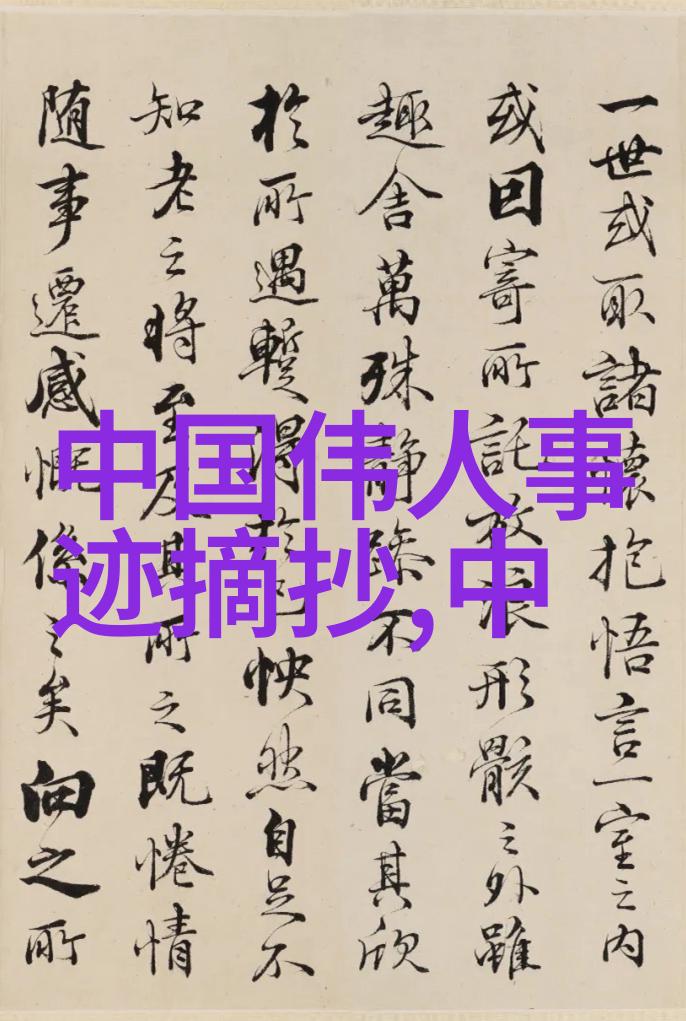 一世或取諸懷抱悟言一室之内
或因寄所託放浪形骸之外雖
趣舍萬殊静躁不同當其欣
於所遇蹔得於己怏然自足不
知老之將至及其所之既惓情
随事遷感慨係之矣向之所
中国伟人事
迹摘抄,中